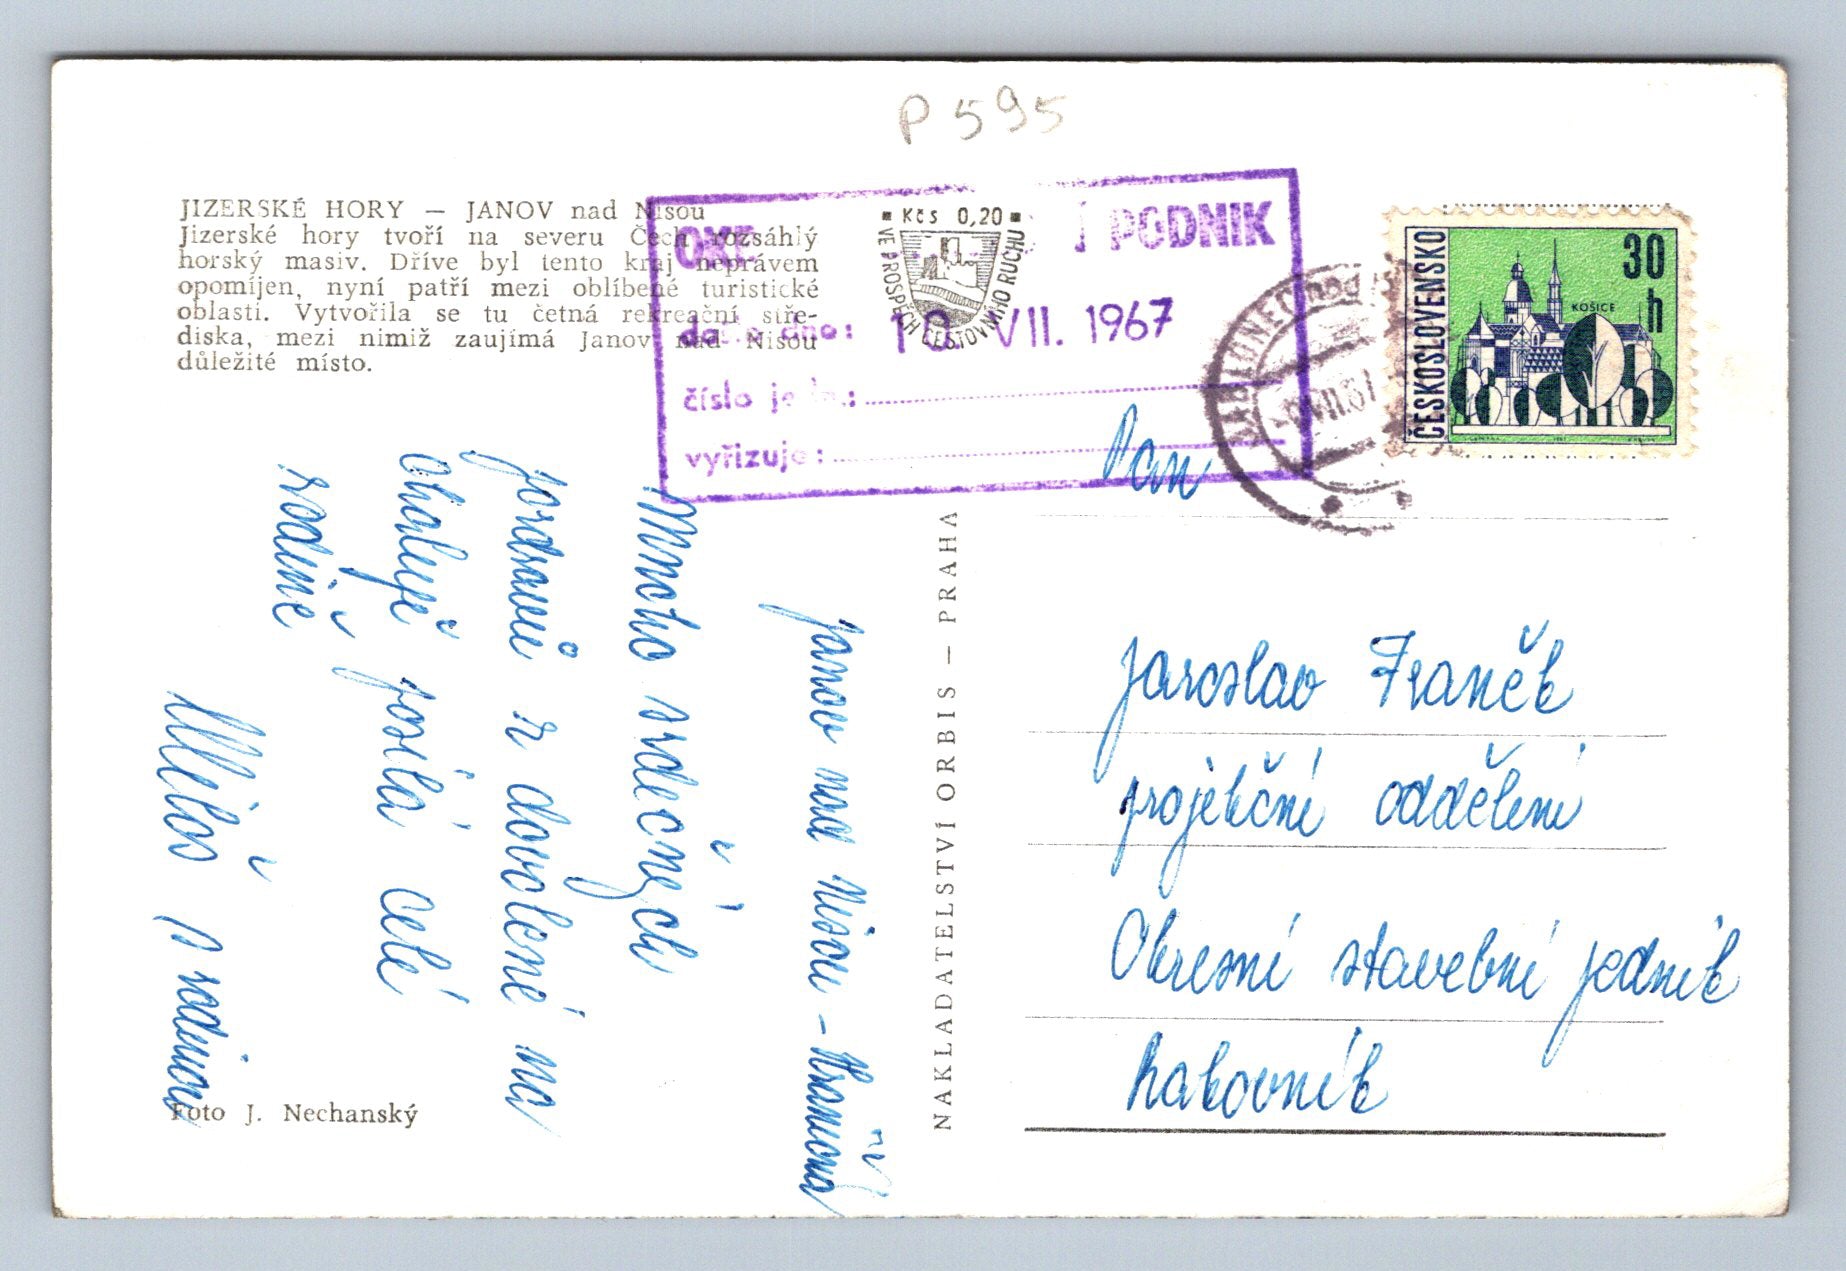 P 595
JIZERSKÉ HORY — JANOV nad Nisou
Jizerské hory tvoří na severu Čech rozsáhlý
horský masiv. Dříve byl tento kraj neprávem
opomíjen, nyní patří mezi oblíbené turistické
oblasti. Vytvořila se tu četná rekreační stře-
diska, mezi nimiž zaujímá Janov nad Nisou
důležité místo.
Kčs 0,20
VE PROSPĚCH CESTOVNÍHO RUCHU
PODNIK
dne: 10. VII. 1967
číslo
vyřizuje:
JABLONEC nad
VII.67
ČESKOSLOVENSKO
30 h
KOŠICE
Janov nad Nisou -
Mnoho srdečných
pozdravů z dovolené na
posílá celé
rodině
Miloš s rodinou
Foto J. Nechanský
NAKLADATELSTVÍ ORBIS — PRAHA
Pan
Jaroslav Franěk
projekční oddělení
Okresní stavební podnik
Rakovník